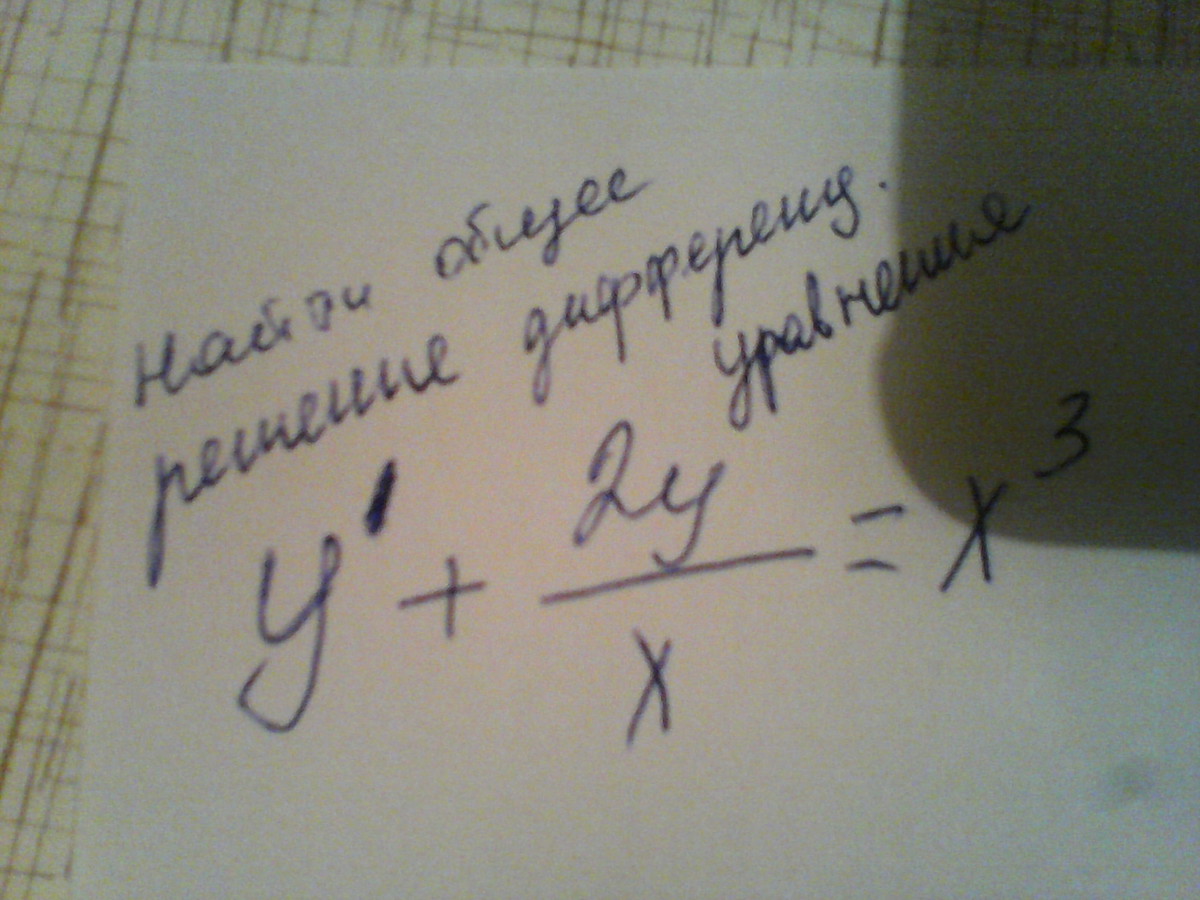 Найти общее
решение дифференц.
уравнения
y' + 2y/x = x³